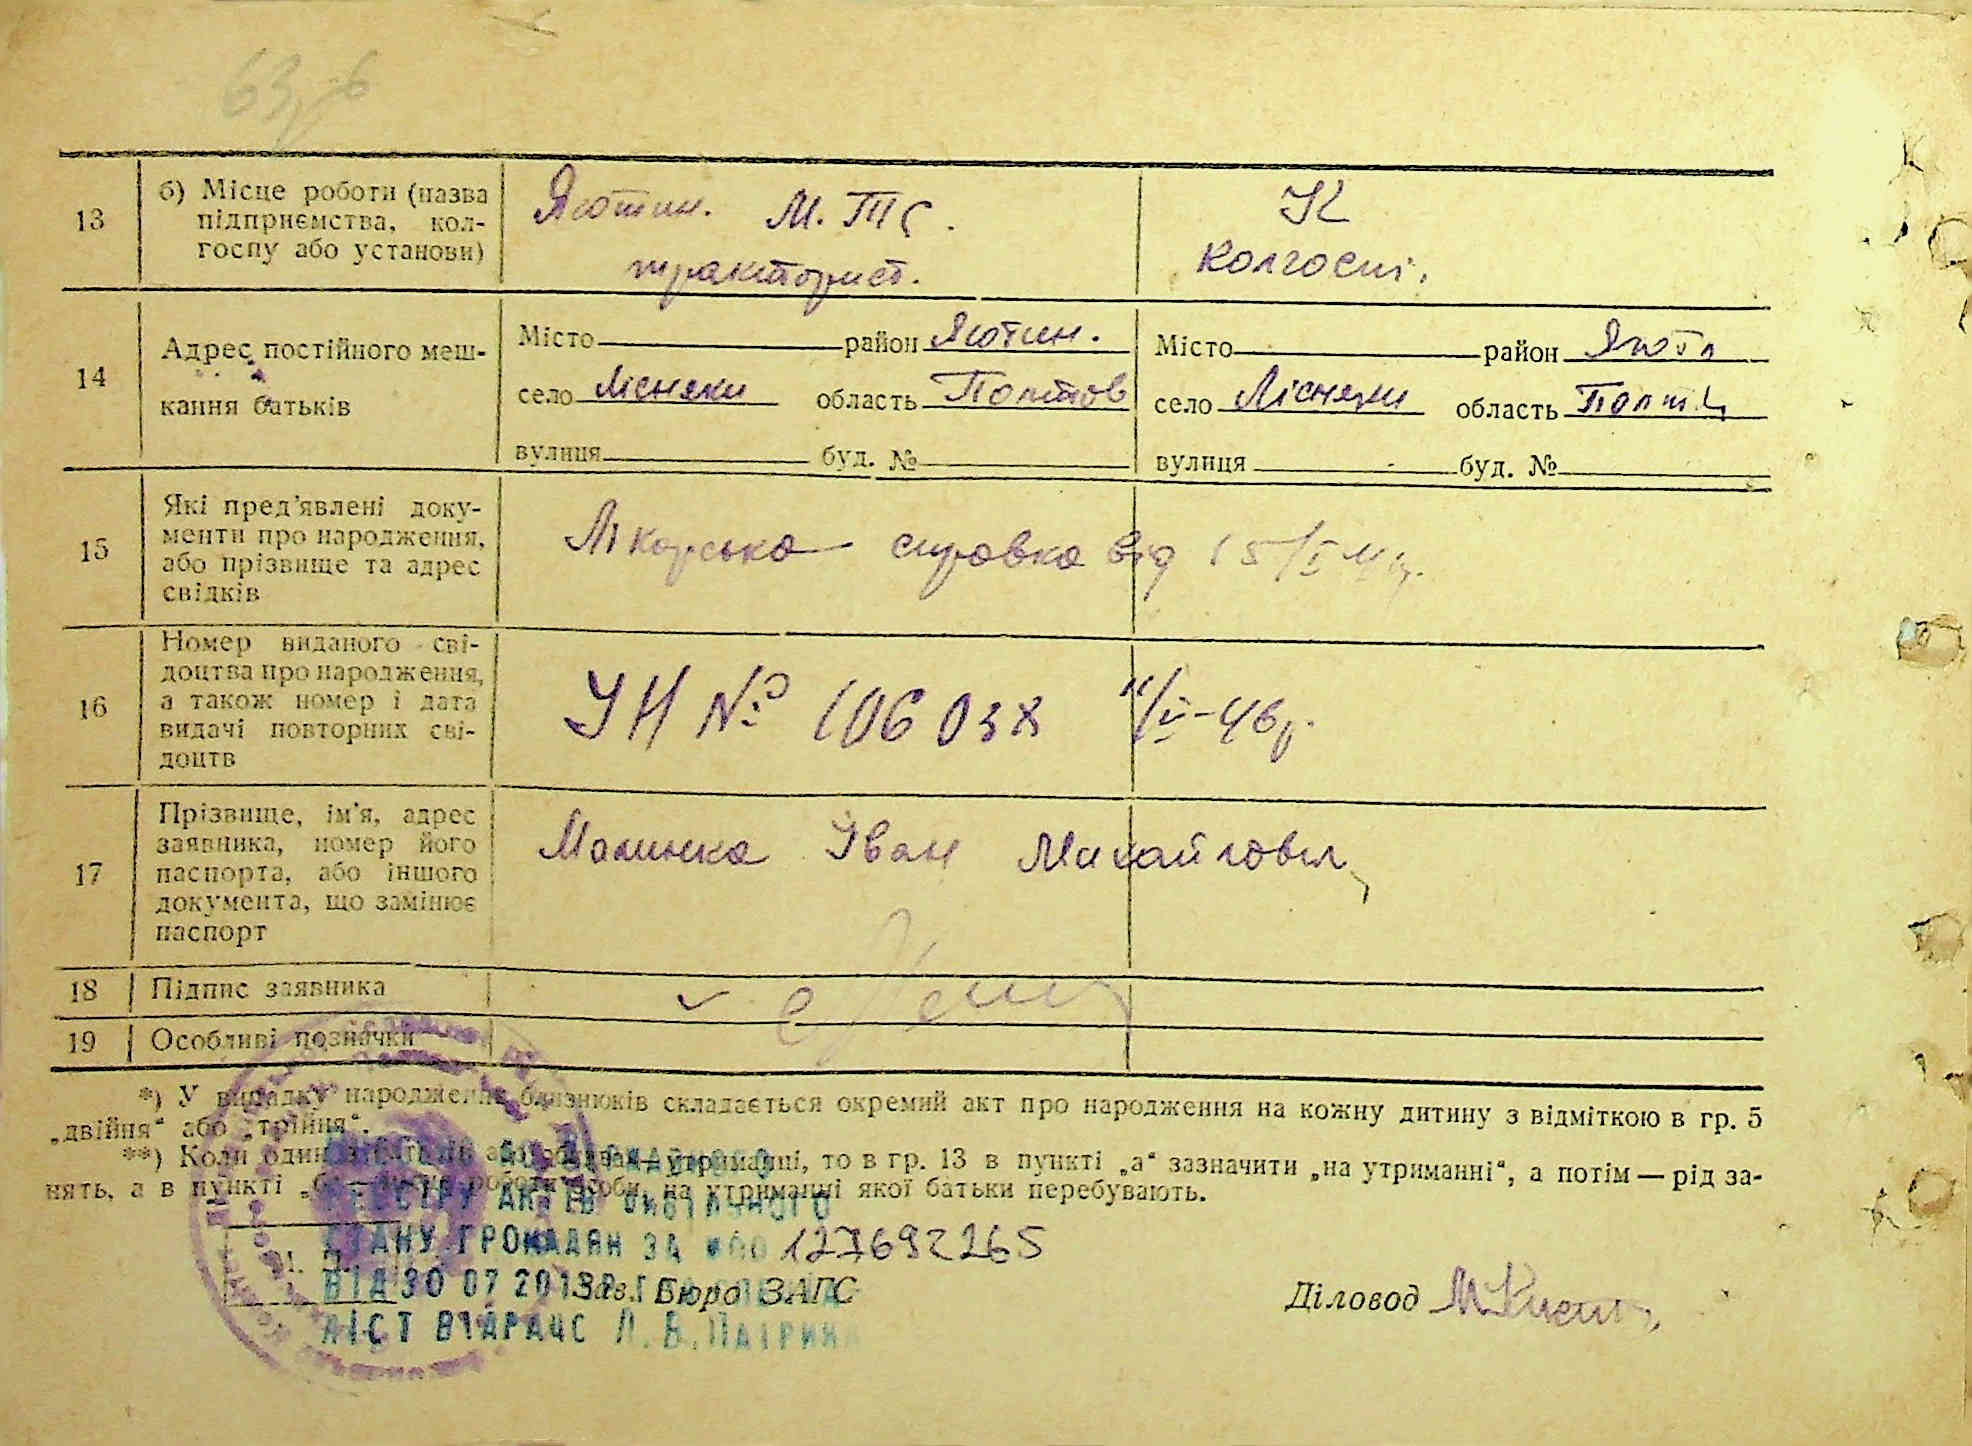 13
б) Місце роботи (назва
підприємства, кол-
госпу або установи)
Яготин. М.Т.С.
тракторист.
К
колгоспі.
14
Адрес постійного меш-
кання батьків
Місто район Яготин.
село Лісняки область Полтов
вулиця буд. №
Місто район
село Лісняки область
вулиця буд. №
15
Які пред'явлені доку-
менти про народження,
або прізвище та адрес
свідків
Лікарська справка від 15/
16
Номер виданого сві-
доцтва про народження,
а також номер і дата
видачі повторних сві-
доцтв
УН № 106038 -46р.
17
Прізвище, ім'я, адрес
заявника, номер його
паспорта, або іншого
документа, що замінює
паспорт
Малинка Іван Михайлович
18
Підпис заявника
19
Особливі позначки
*) У випадку народження близнюків складається окремий акт про народження на кожну дитину з відміткою в гр. 5
„двійня“ або „трійня“.
**) Коли один утриманні, то в гр. 13 в пункті „а“ зазначити „на утриманні“, а потім — рід за-
нять, а в пункті роботи особи, на утриманні якої батьки перебувають.
РЕЄСТРУ АКТІВ ЦИВІЛЬНОГО
СТАНУ ГРОМАДЯН ЗА 127692265
ВІД 30 07 201
Зав. Бюро ЗАГС
Діловод